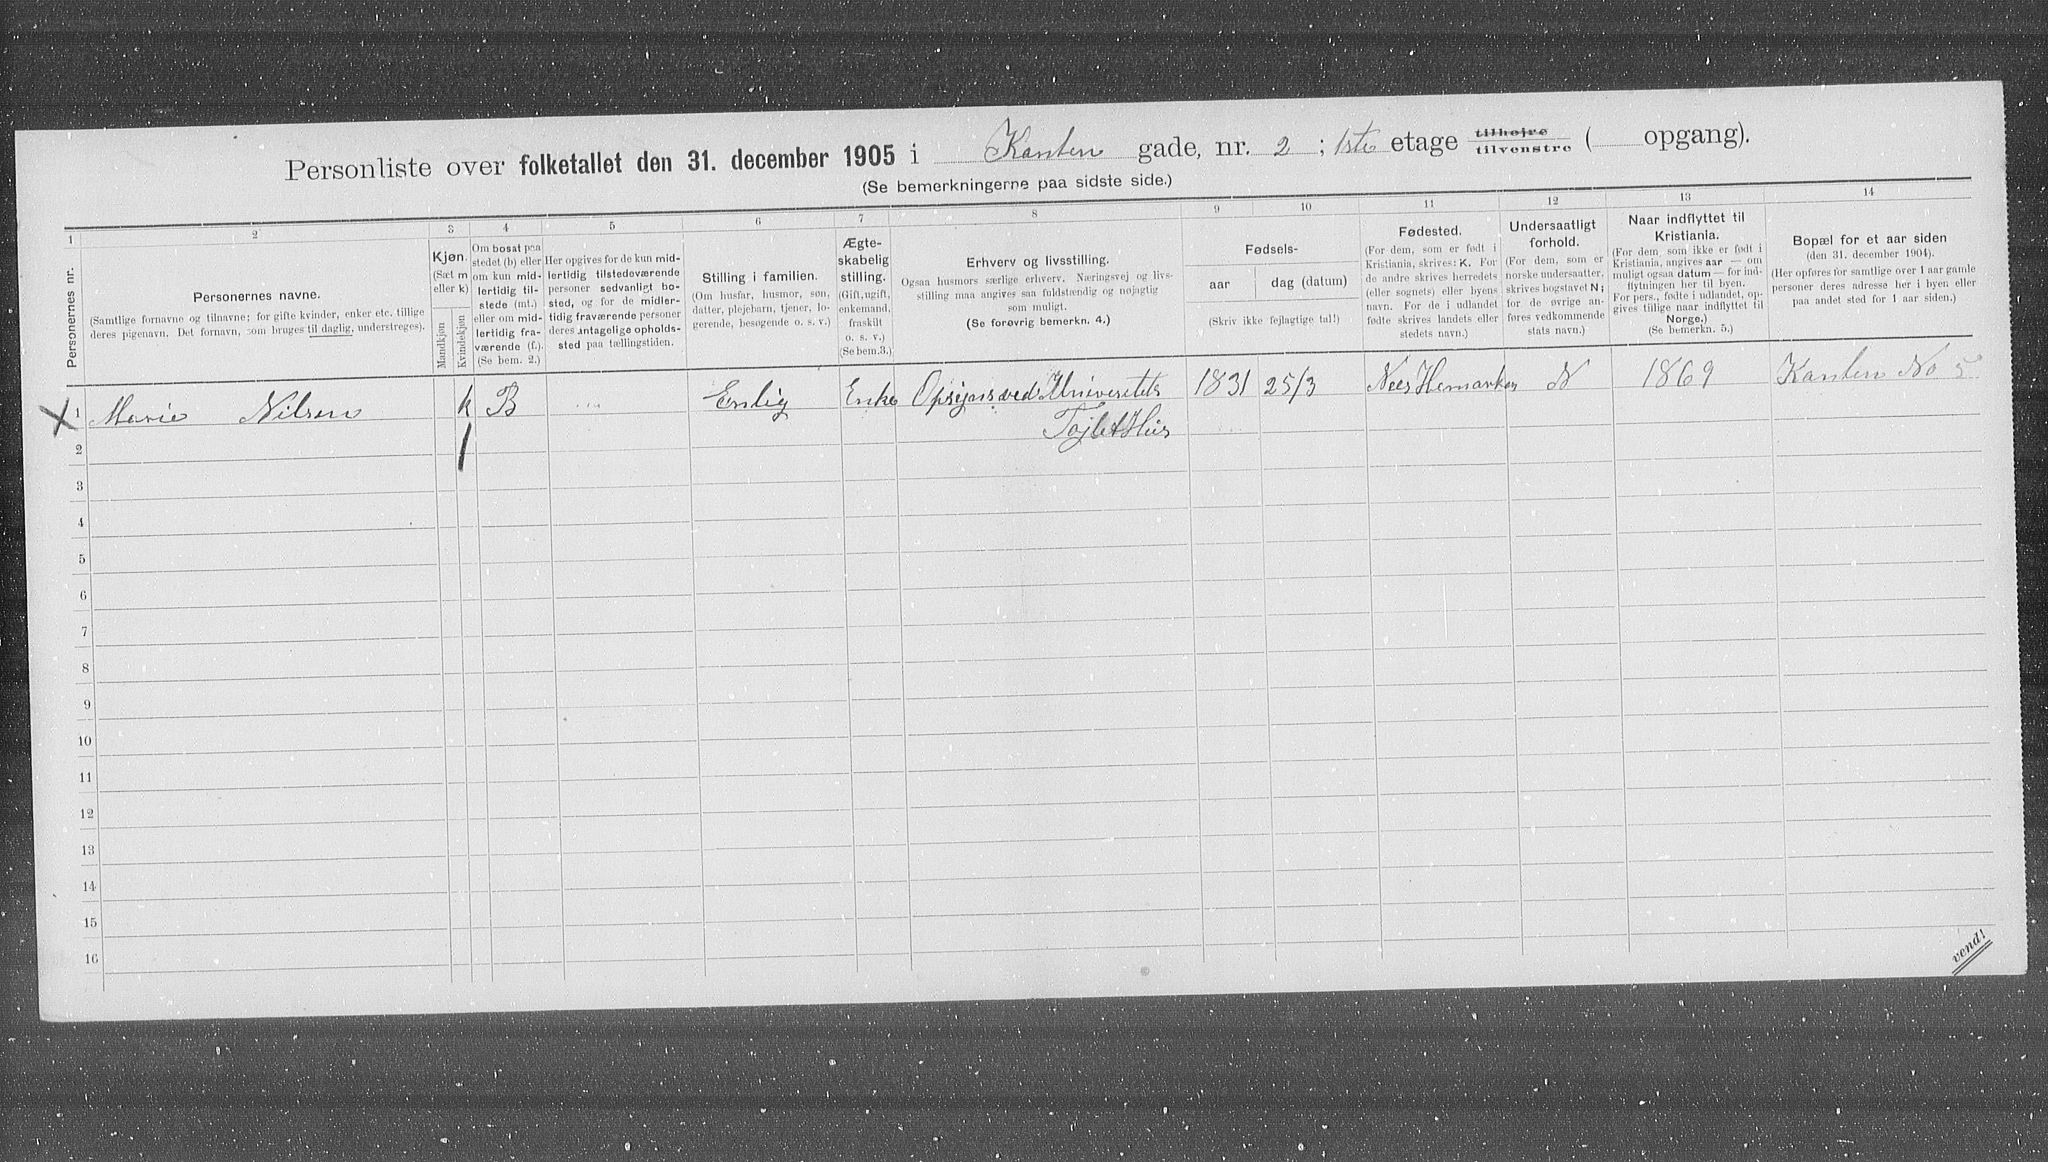 Personliste over folketallet den 31. december 1905 i Karsten gade, nr. 2 ; 1ste etage tilhøjre tilvenstre ( opgang).
(Se bemerkningerne paa sidste side.)
1 2 3 4 5 6 7 8 9 10 11 12 13 14
Personernes nr.
Personernes navne.
(Samtlige fornavne og tilnavne; for gifte kvinder, enker etc. tillige
deres pigenavn. Det fornavn, som bruges til daglig, understreges).
Kjøn.
(Sæt m
eller k)
Mandkjøn
Kvindekjøn
Om bosat paa
stedet (b) eller
om kun mid-
lertidig til-
stede (mt.)
eller om mid-
lertidig fra-
værende (f.).
(Se bem. 2.)
Her opgives for de kun mid-
lertidig tilstedeværende
personer sedvanligt bo-
sted, og for de midler-
tidig fraværende personer
deres antagelige opholds-
sted paa tællingstiden.
Stilling i familien.
(Om husfar, husmor, søn,
datter, plejebarn, tjener, lo-
gerende, besøgende o. s. v.)
Ægte-
skabelig
stilling.
(Gift, ugift,
enkemand,
fraskilt
o. s. v.)
(Se bem.3.)
Erhverv og livsstilling.
Ogsaa husmors særlige erhverv. Næringsvej og livs-
stilling maa angives saa fuldstændig og nøjagtig
som muligt.
(Se forøvrig bemerkn. 4.)
Fødsels-
aar dag (datum)
(Skriv ikke fejlagtige tal!)
Fødested.
(For dem, som er født i
Kristiania, skrives: K. For
de andre skrives herredets
(eller sognets) eller byens
navn. For de i udlandet
fødte skrives landets eller
stedets navn.)
Undersaatligt
forhold.
(For dem, som er
norske undersaatter,
skrives bogstavet N;
for de øvrige an-
føres vedkommende
stats navn.)
Naar indflyttet til
Kristiania.
(For dem, som ikke er født i
Kristiania, angives aar — om
muligt ogsaa datum — for ind-
flytningen her til byen.
For pers., fødte i udlandet, op-
gives tillige naar indflyttet til
Norge.)
(Se bemerkn. 5.)
Bopæl for et aar siden
(den 31. december 1904).
(Her opføres for samtlige over 1 aar gamle
personer deres adresse her i byen eller
paa andet sted for 1 aar siden.)
1 Marie Nilsen k B Enlig Enke Opsijnsved Universitets 1831 25/3 Nees Hemarken N 1869 Karsten No 5
Tojlet Hus
2
3
4
5
6
7
8
9
10
11
12
13
14
15
16
vend!